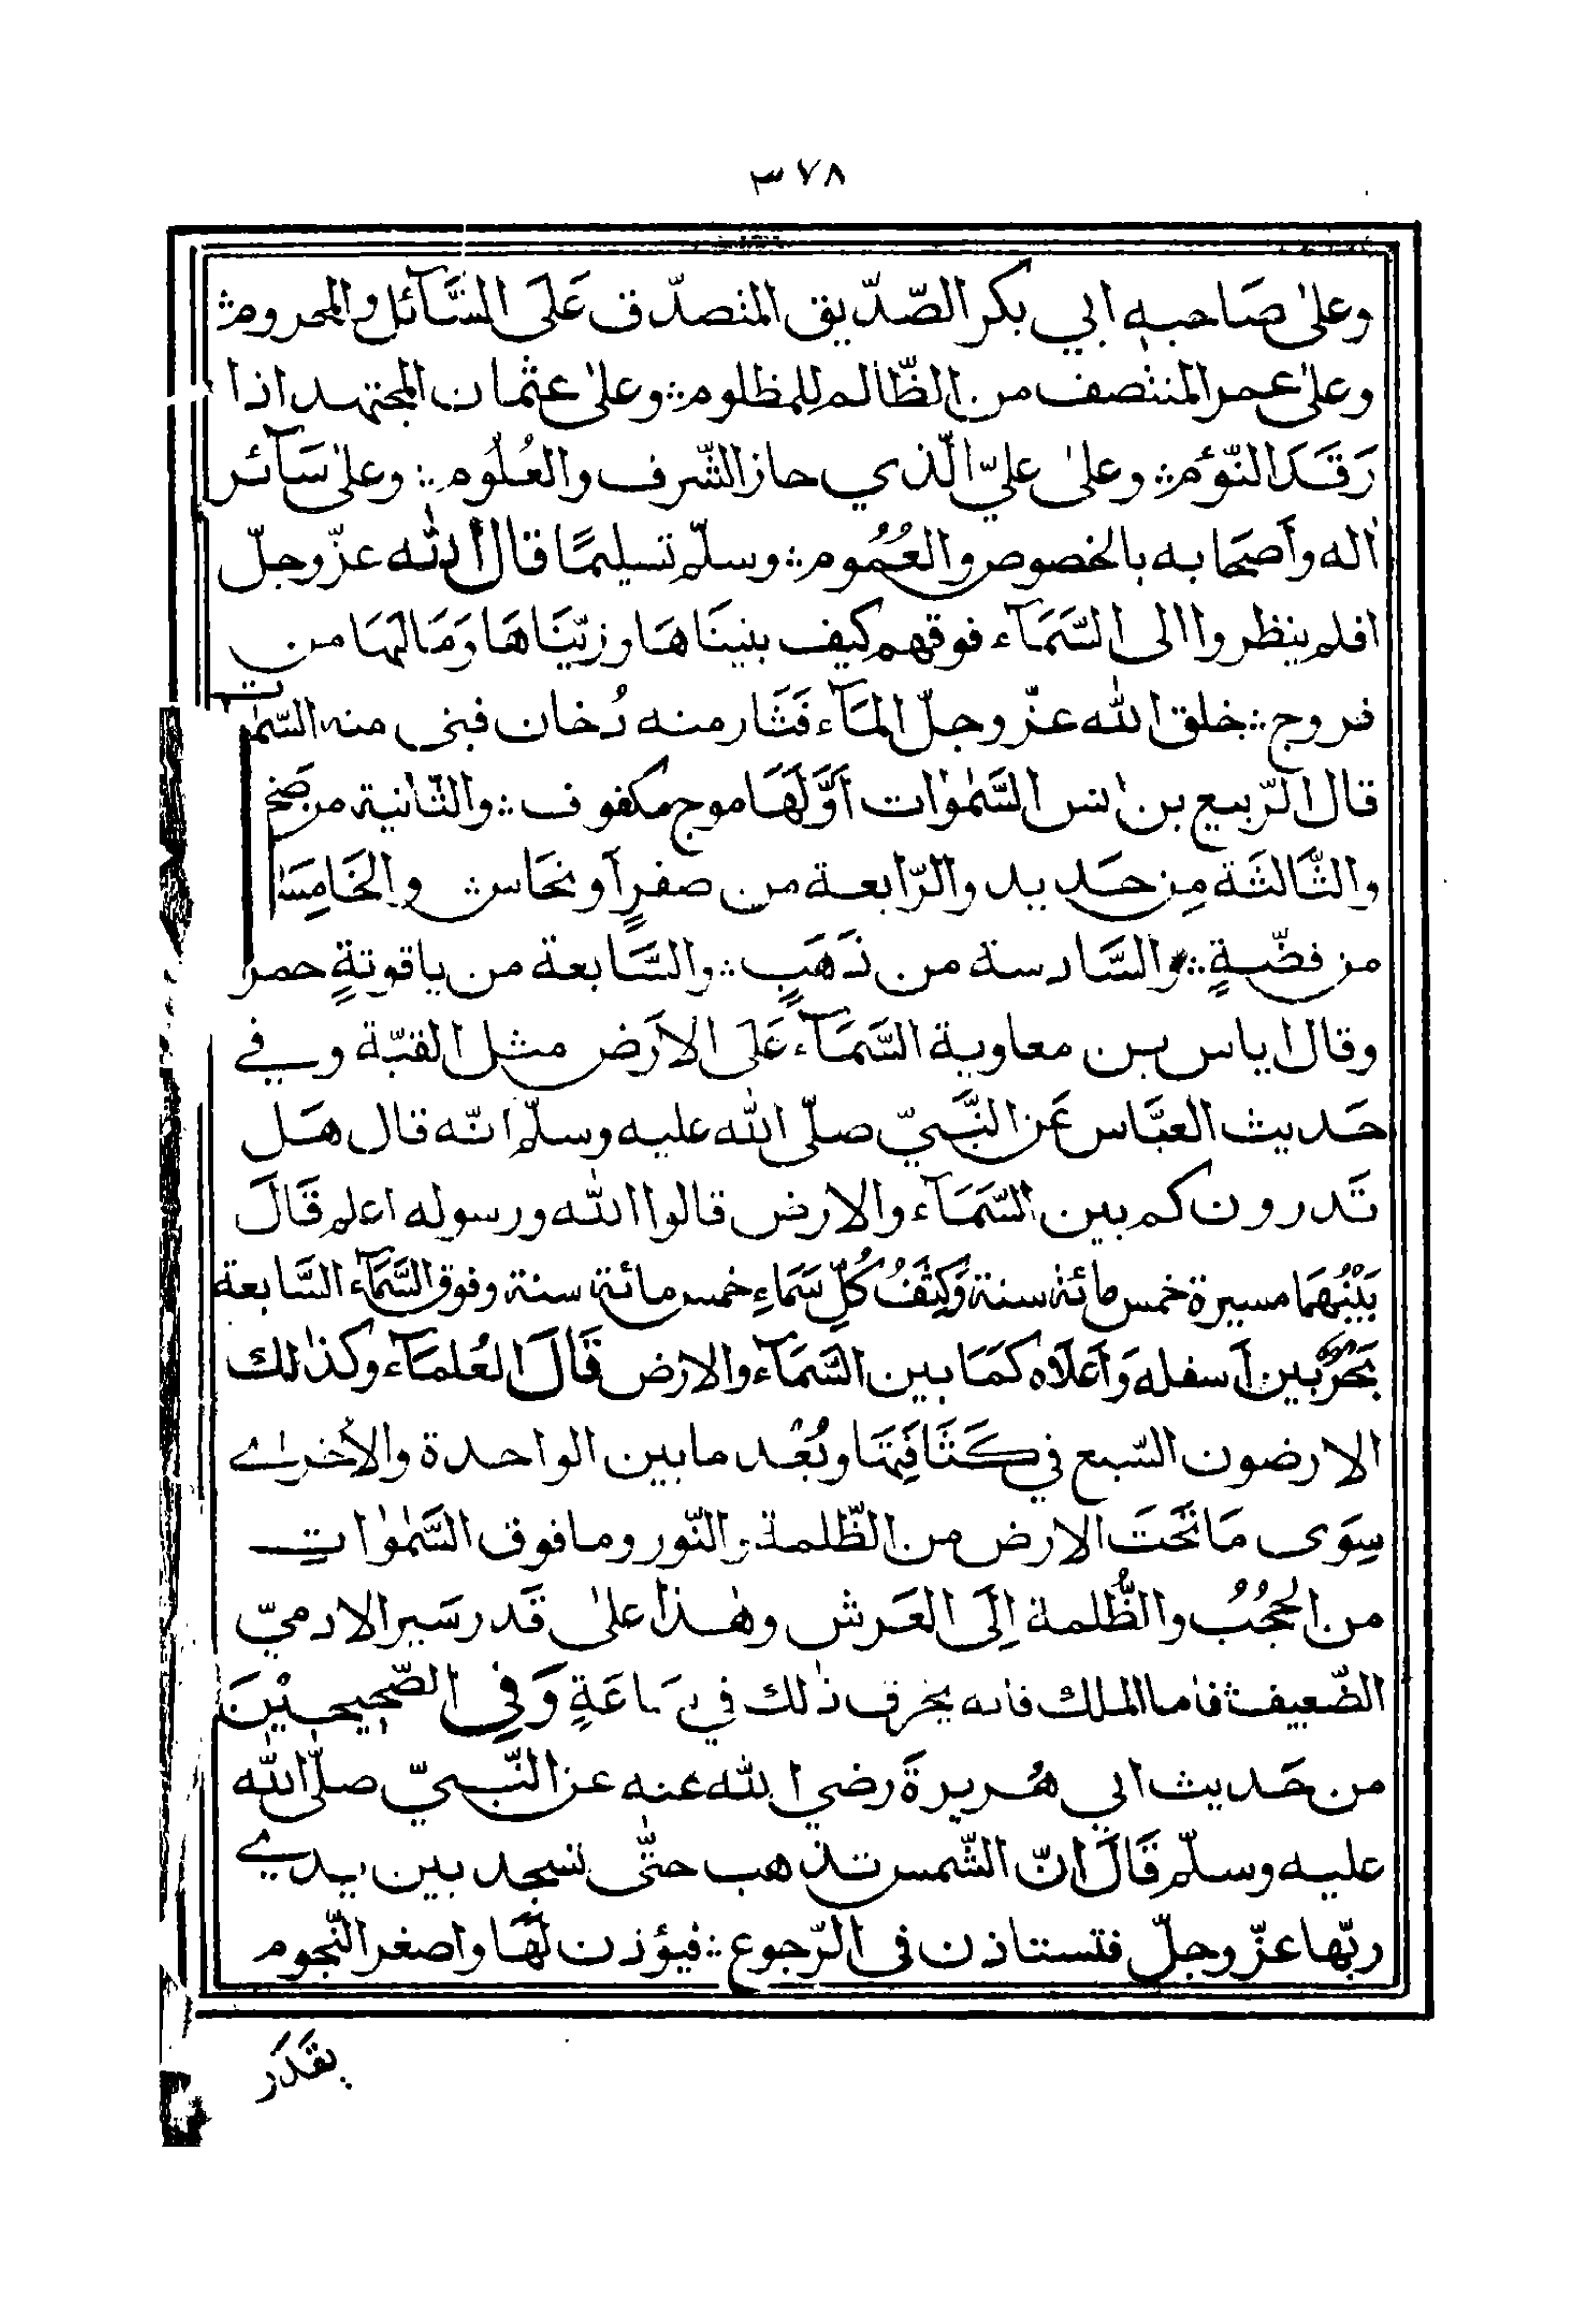 ٣٧٨
وعلىٰ صَاحبه ابي بكر الصّدّيق المتصدّق عَلَى السَّآئل والمحروم ∴
وعلىٰ عمر المنتصف من الظّالم للمظلوم ∴ وعلىٰ عثمان المجتهد اذا
رَقَدَ النّوّم ∴ وعلىٰ عليّ الّذي حاز الشّرف والعُلُوم ∴ وعلىٰ سَآئر
اٰله وأَصحَابه بالخصوص والعُمُوم ∴ وسلّم تسليمًا قال اللّٰه عزّ وجلّ
افلم ينظروا الى السَّمَآء فوقهم كيف بنينَاهَا وزيّنّاهَا وَمَا لَهَا من
فروج ∴ خلق اللّٰه عزّ وجلّ المَآء فَثَار منه دُخان فبنى منه السّمٰوٰت
قال الرّبيع بن انس السَّمٰوٰات أَوَّلهَا موج مكفوف ∴ والثّانية من صَخ
والثَّالثَة مِن حَديد والرّابعة من صفرٍ أو نحَاس ∴ والخَامِسَة
من فضّةٍ ∴ والسَّادسة من ذَهَبٍ ∴ والسَّابعة من ياقوتةٍ حمر
وقال اياس بن معاوية السَّمَآء عَلَى الاَرَض مثل القبّة وفي
حَديث العبَّاس عَن النَّبيّ صلّى اللّٰه عليه وسلّم انّه قال هَل
تَدرون كم بين السَّمَآء والارض قالوا اللّٰه ورسوله اعلم قَالَ
بَيْنُهمَا مسيرة خمس مائة سنة وَكِثَفُ كُلِّ سَمَاءٍ خمس مائة سنة وفوق السَّمَآء السَّابعة
بَحْرٌ بين أَسفله وَأَعلَاه كمَا بين السَّمَآء والارض قَالَ العُلمَآء وكذٰلك
الارضون السّبع في كَثَافَتِهَا وبُعْد ما بين الواحدة والأخرىٰ
سِوَى مَا تَحْتَ الارض من الظّلمة والنّور وما فوق السَّمٰوٰات
من الحُجُبُ والظُّلمة اِلَى العَرش وهٰذا علىٰ قَدر سَير الادميّ
الضّعيف ∴ فاما الملك فانه يخرق ذٰلك في سَاعَةٍ وَفِى الصّحِيحيْنَ
من حَديث ابي هُريرةَ رضي اللّٰه عنه عن النّبيّ صلّى اللّٰه
عليه وسلّم قَالَ انّ الشّمس تذهب حتّٰى تسجد بين يدي
ربّها عزّ وجلّ فتستاذن فى الرّجوع ∴ فيؤذن لَهَا واصغر النّجوم
بقَدَر